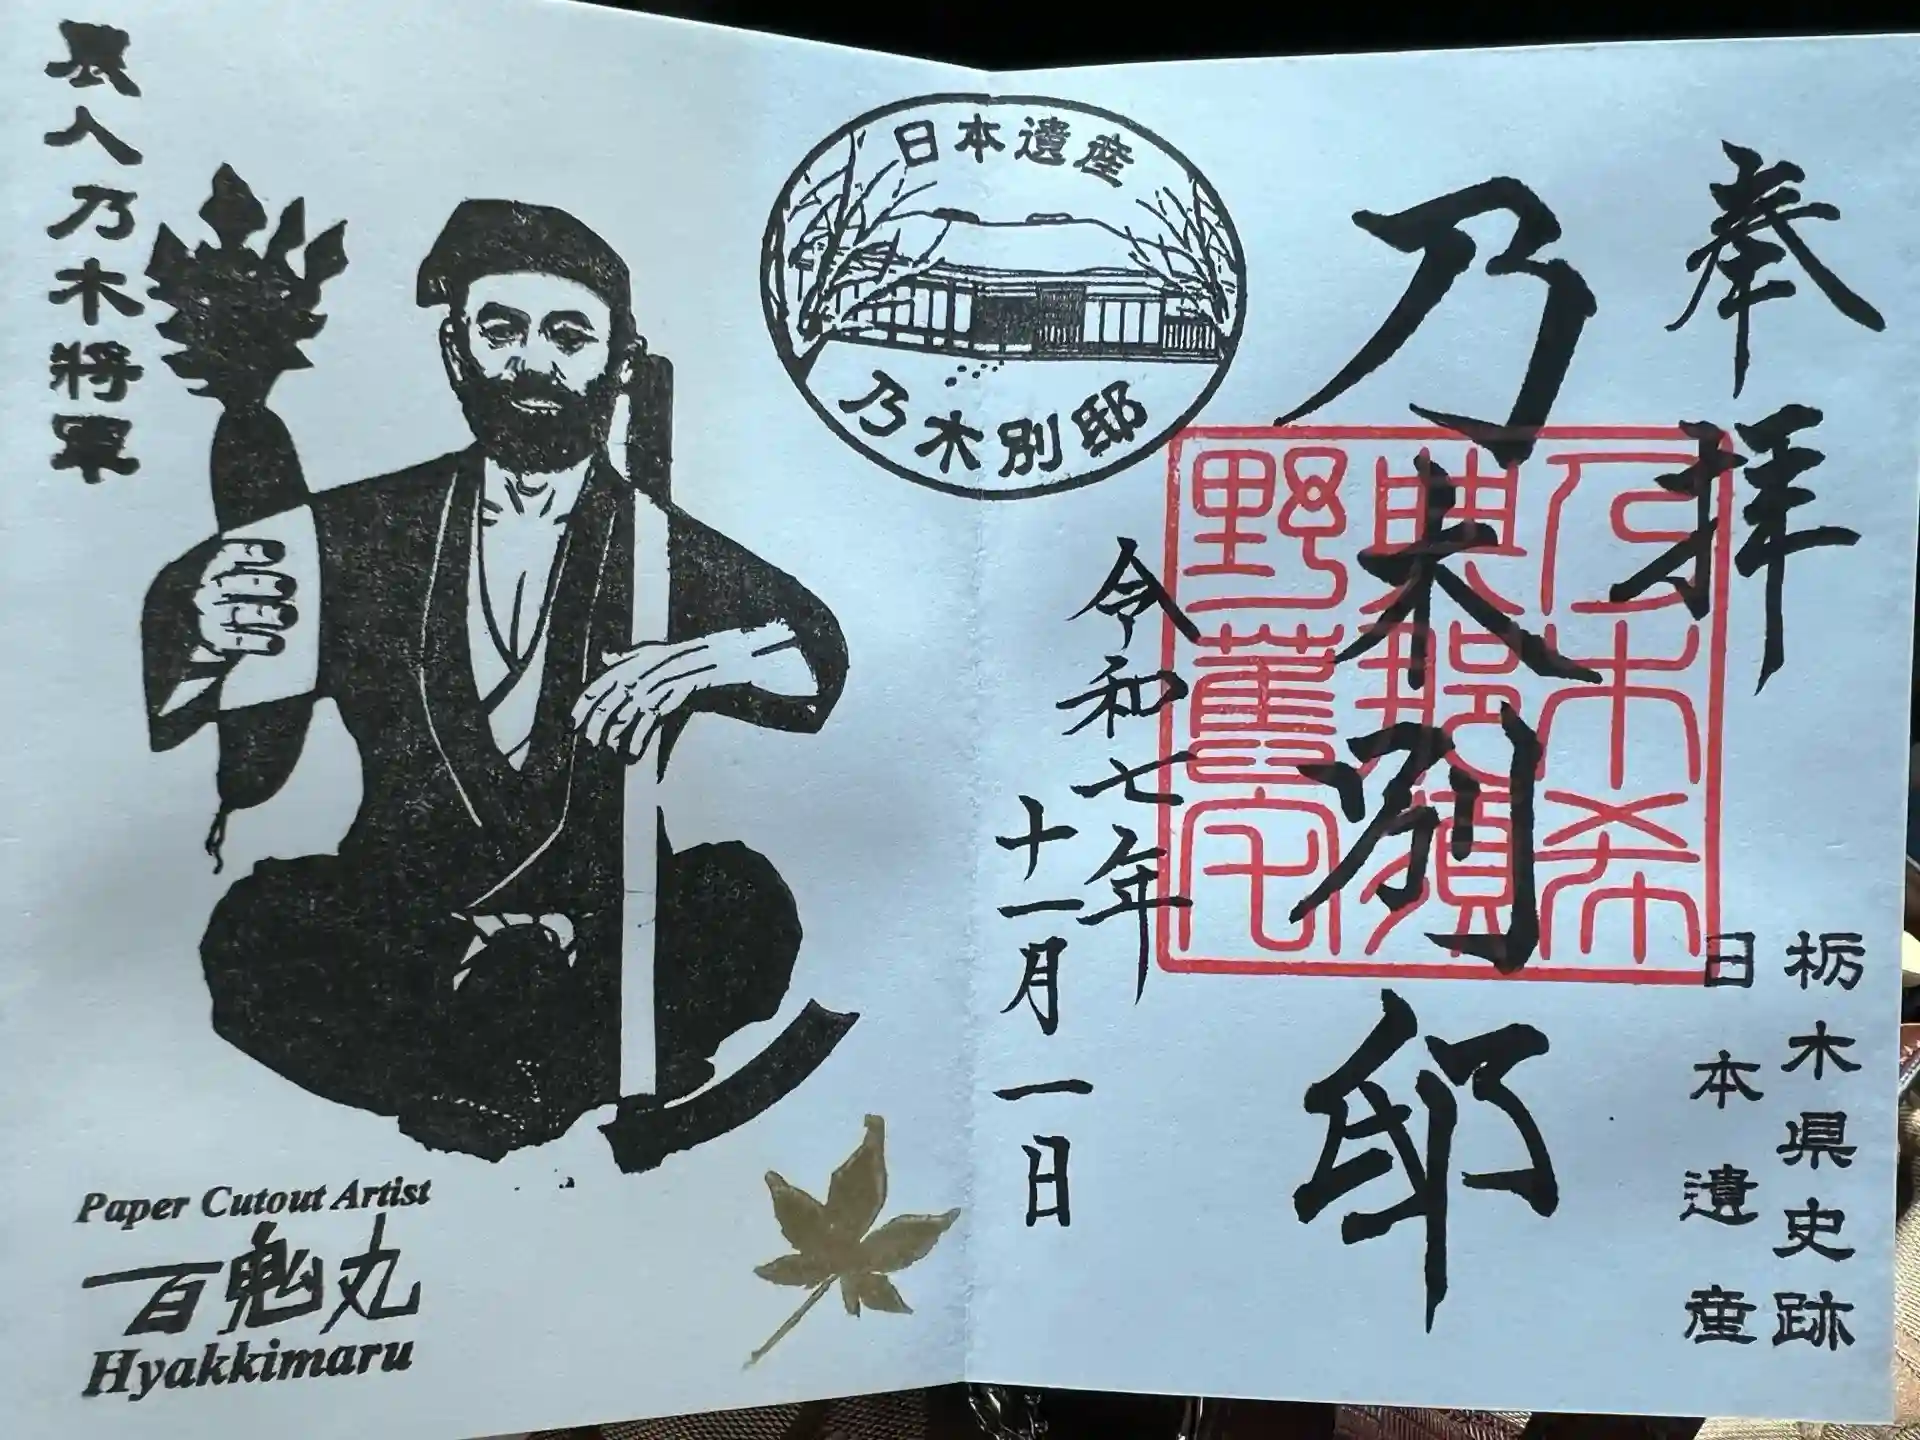 奉拝
栃木県史跡
日本遺産
乃木希
典那須
野舊宅
乃木別邸
令和七年
十一月一日
日本遺産
乃木別邸
農人乃木將軍
Paper Cutout Artist
百鬼丸
Hyakkimaru